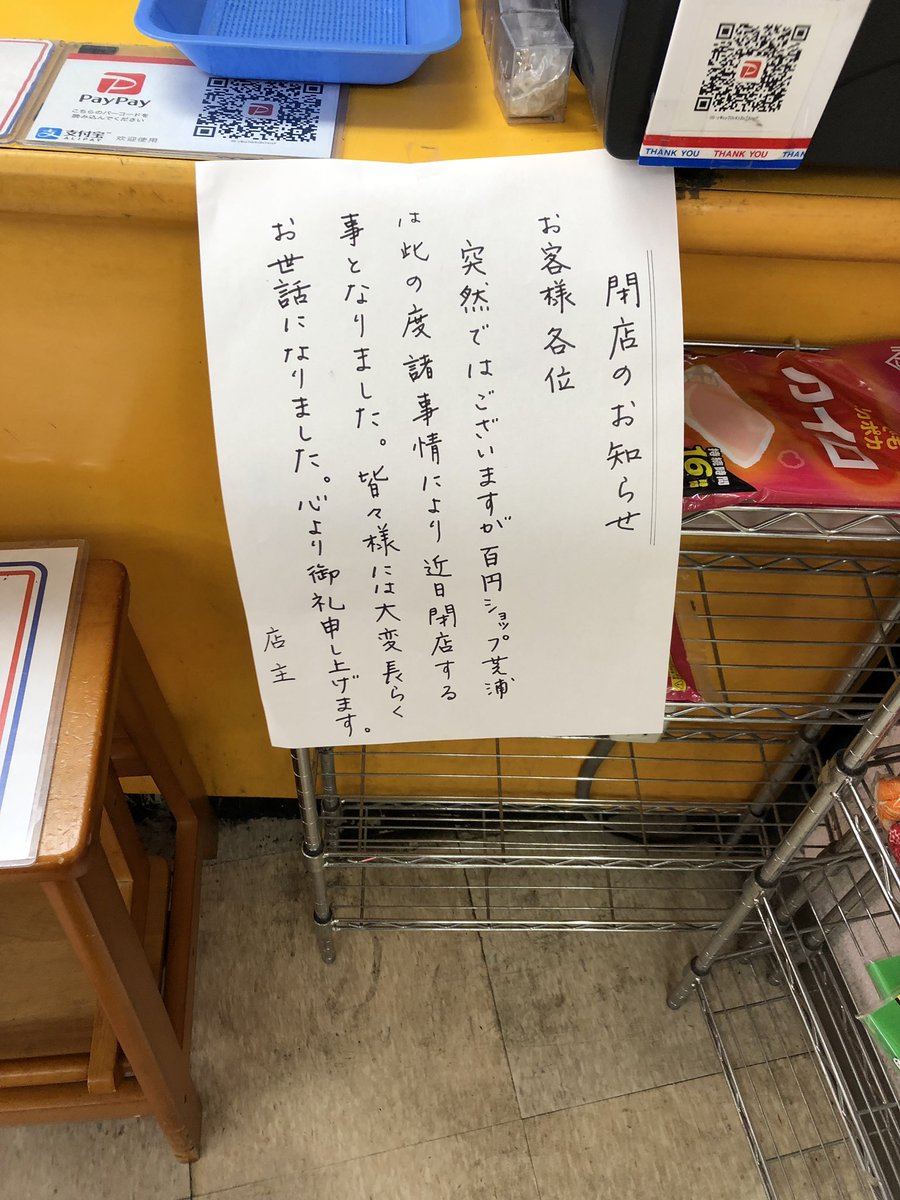 PayPay
こちらのバーコードを
読み込んでください
支付宝™
ALIPAY
欢迎使用
THANK YOU THANK YOU THANK YOU
閉店のお知らせ
お客様各位
突然ではございますが百円ショップ芝浦
は此の度諸事情により近日閉店する
事となりました。皆々様には大変長らく
お世話になりました。心より御礼申し上げます。
店主
カイロ
16